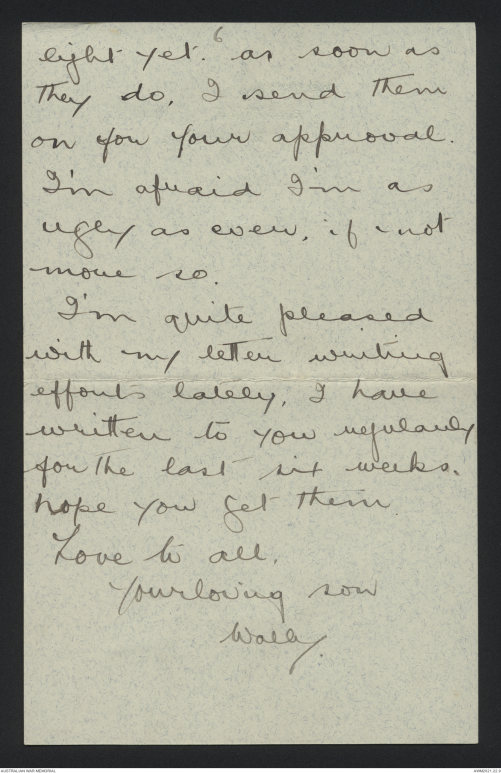 6
eight yet. as soon as
they do, I send them
on for your approval.
I'm afraid I'm as
ugly as ever, if not
more so.
I'm quite pleased
with my letter writing
efforts lately, I have
written to you regularly
for the last six weeks.
hope you get them
Love to all.
Your loving son
Wally.
AUSTRALIAN WAR MEMORIAL